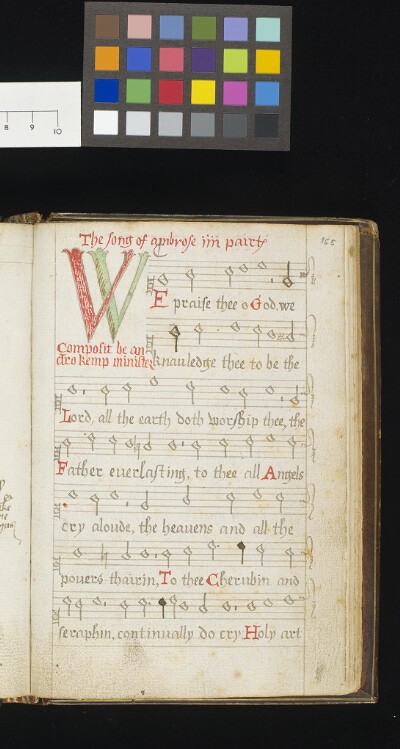 8 9 10
The song of ambrose iiii partß
165
WE praise thee o God, we
Composit be an
dro kemp minister
knauledge thee to be the
Lord, all the earth doth worship thee, the
Father everlasting, to thee all Angels
cry aloude, the heavens and all the
pouers thairin, To thee Cherubin and
seraphin, continually do cry Holy art